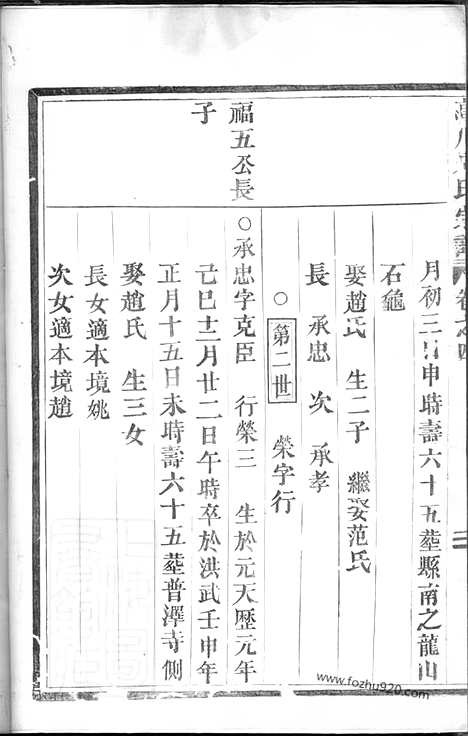 氏宗譜
卷之四
月初三日申時壽六十五塟縣南之龍山
石龜
娶趙氏 生二子 繼娶范氏
長 承忠 次 承孝
○ 第二世 榮字行
福五公長
子
○承忠字克臣 行榮三 生於元天歷元年
己巳十二月廿二日午時卒於洪武壬申年
正月十五日未時壽六十五塟普澤寺側
娶趙氏 生三女
長女適本境姚
次女適本境趙
www.fozhu920.com